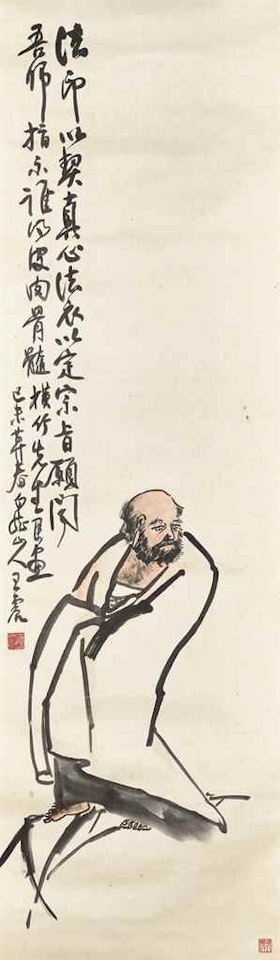 法印以契真心法衣以定宗旨願聞
吾師指示誰得皮肉骨髓 橫竹先生屬畫
己未莫春白龍山人王震